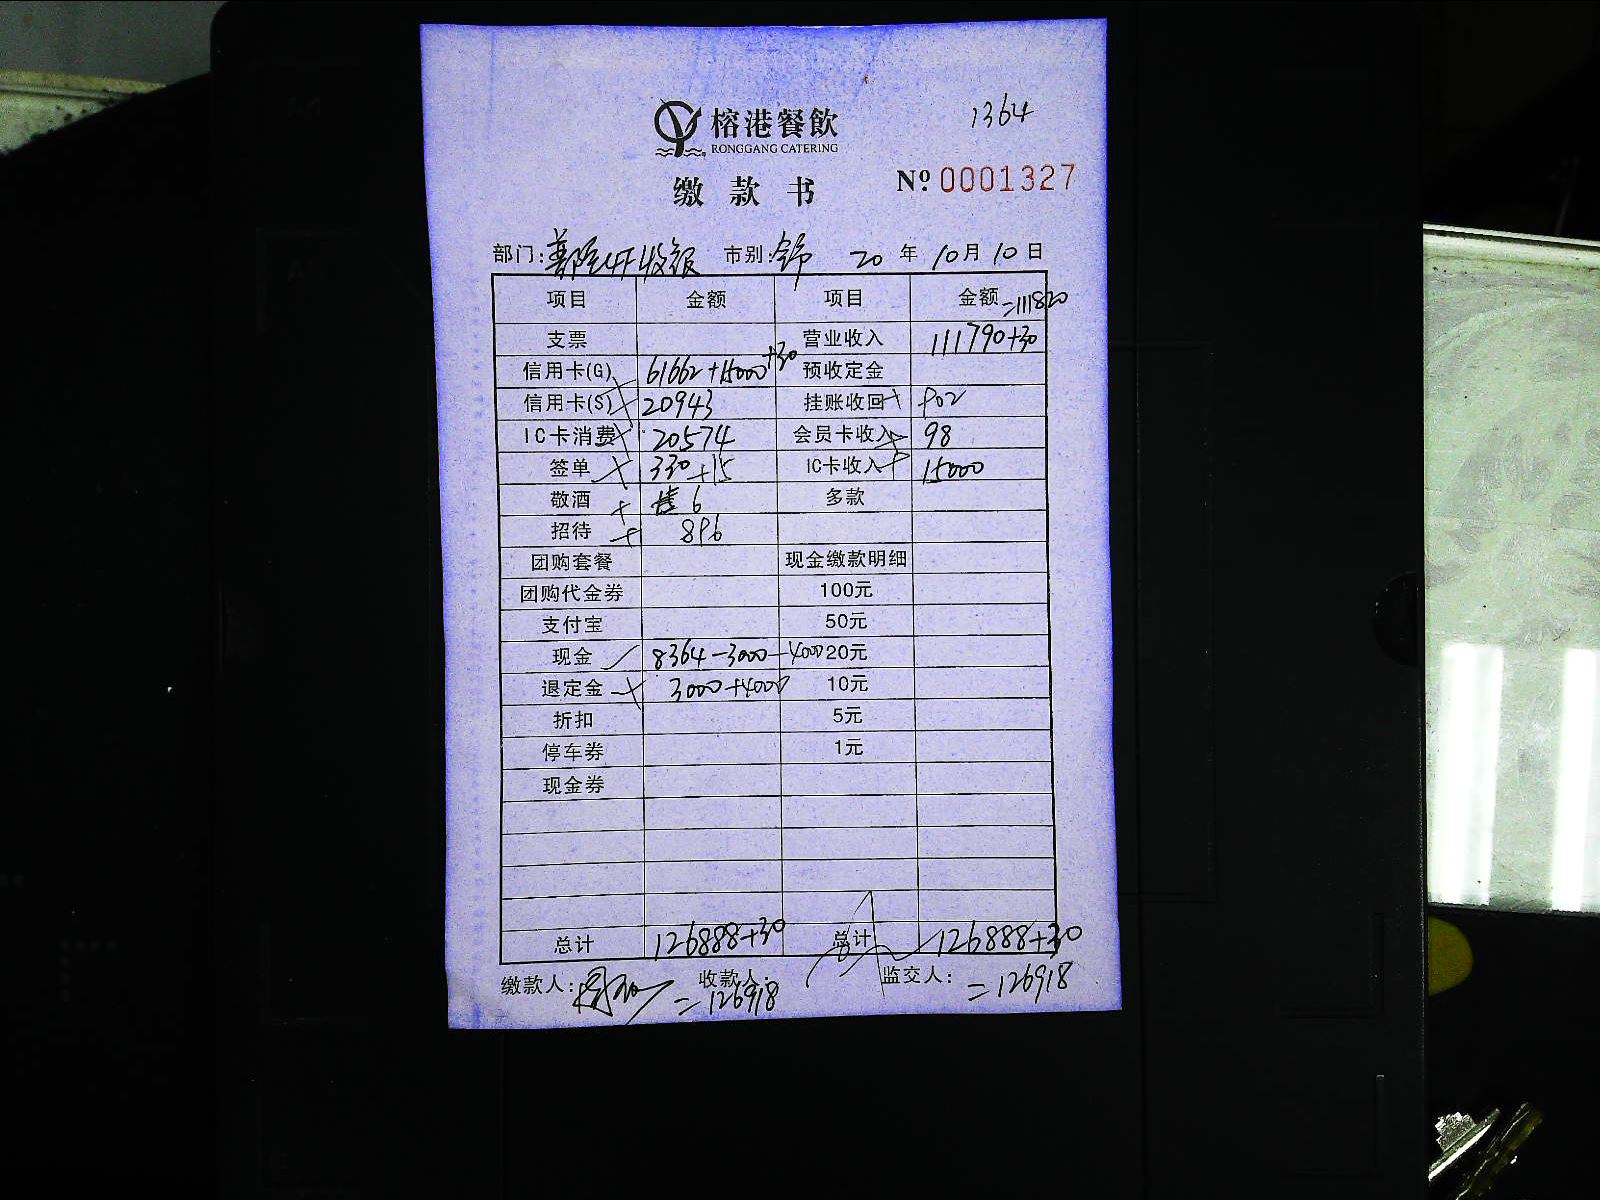 榕港餐飲
RONGGANG CATERING
1364
缴款书
Nº 0001327
部门: 市别: 20 年 10 月 10 日
项目 金额 项目 金额 =111820
支票 营业收入 111790+30
信用卡(G) 61662+15000+30 预收定金
信用卡(S) 20943 挂账收回 902
IC卡消费 20574 会员卡收入 98
签单 330+15 IC卡收入 15000
敬酒 6 多款
招待 896
团购套餐 现金缴款明细
团购代金券 100元
支付宝 50元
现金 8364-3000-4000 20元
退定金 3000+4000 10元
折扣 5元
停车券 1元
现金券
总计 126888+30 总计 126888+30
缴款人: 收款人: =126918 监交人: =126918